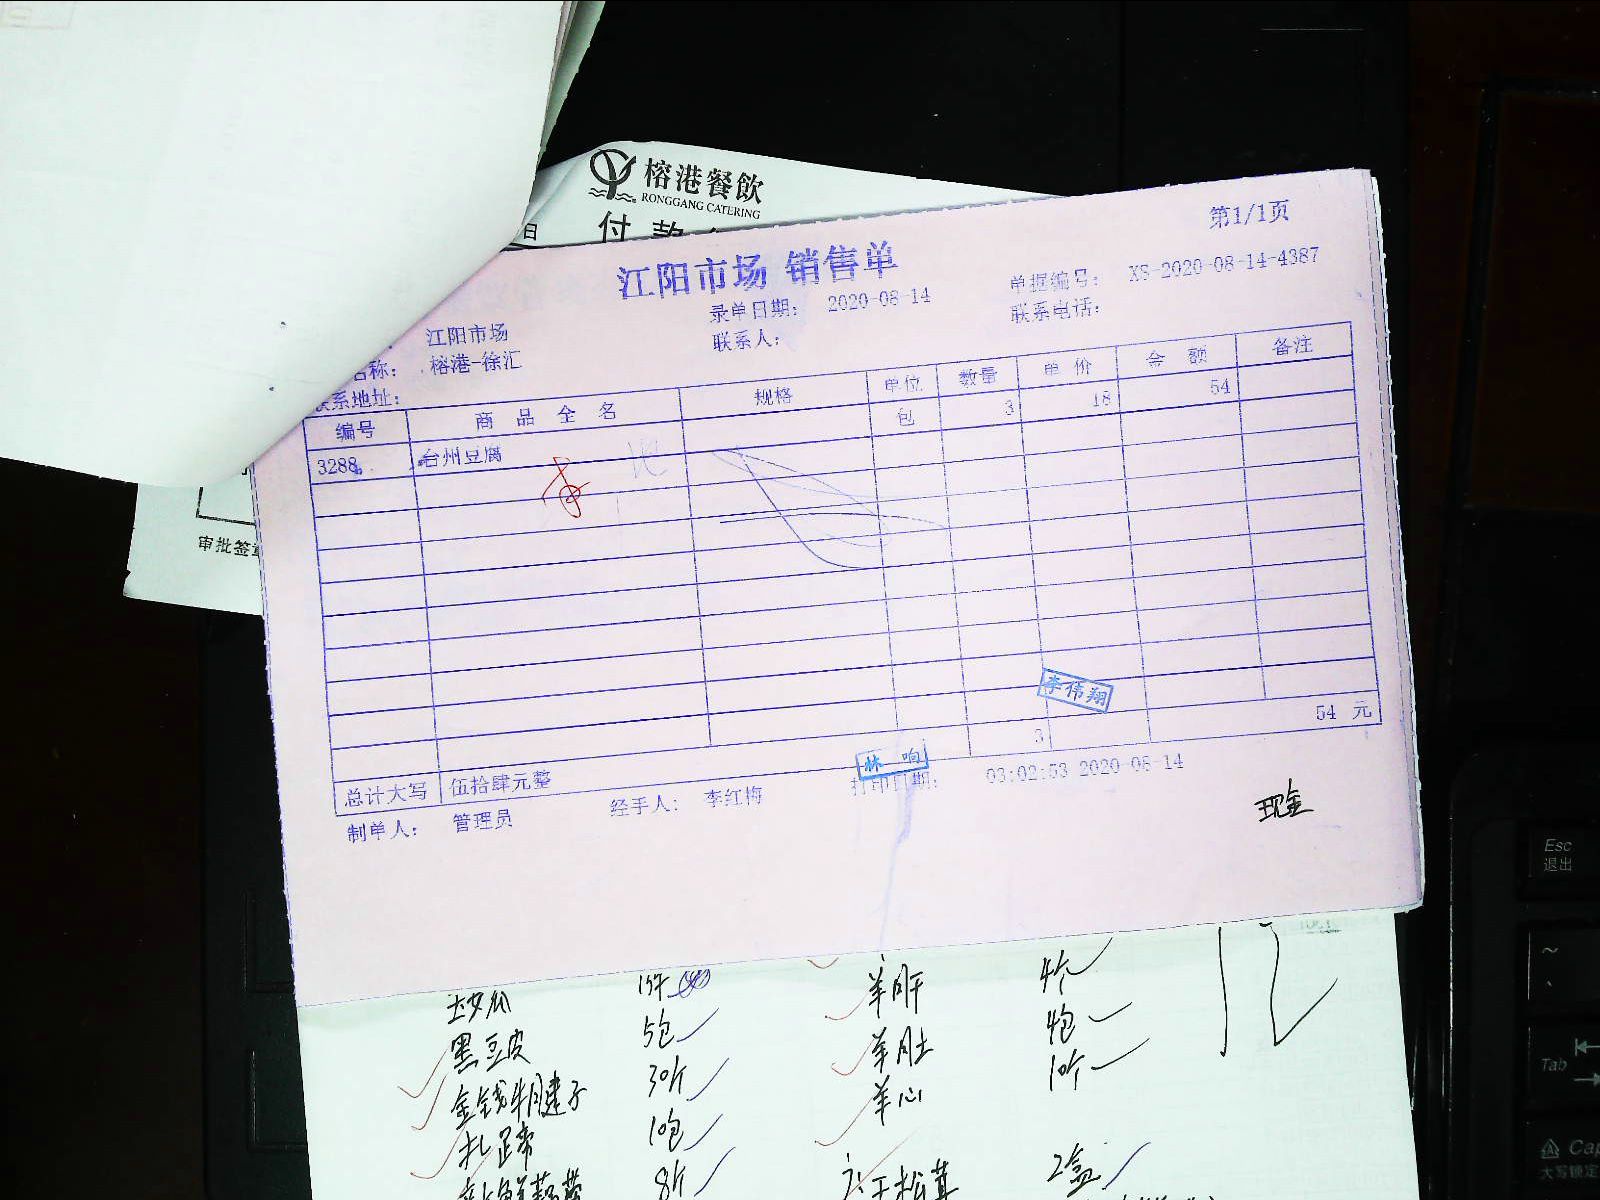 榕港餐飲
RONGGANG CATERING
日 付款
第1/1页
江阳市场 销售单
录单日期： 2020-08-14 单据编号： XS-2020-08-14-4387
联系人： 联系电话：
江阳市场
名称： 榕港-徐汇
联系地址：
编号 商品全名 规格 单位 数量 单价 金额 备注
3288 台州豆腐 包 3 18 54
李伟翔
3 54 元
总计大写 伍拾肆元整
林响
制单人： 管理员 经手人： 李红梅 打印日期： 03:02:53 2020-08-14
现金
审批签
羊肝 4个
黑豆皮 5包 羊肚 4包
金钱牛腱子 30斤 羊心 10个
扎蹄 10包
8斤 松茸 2盒
Esc
退出
~
Tab
Cap
大写锁定